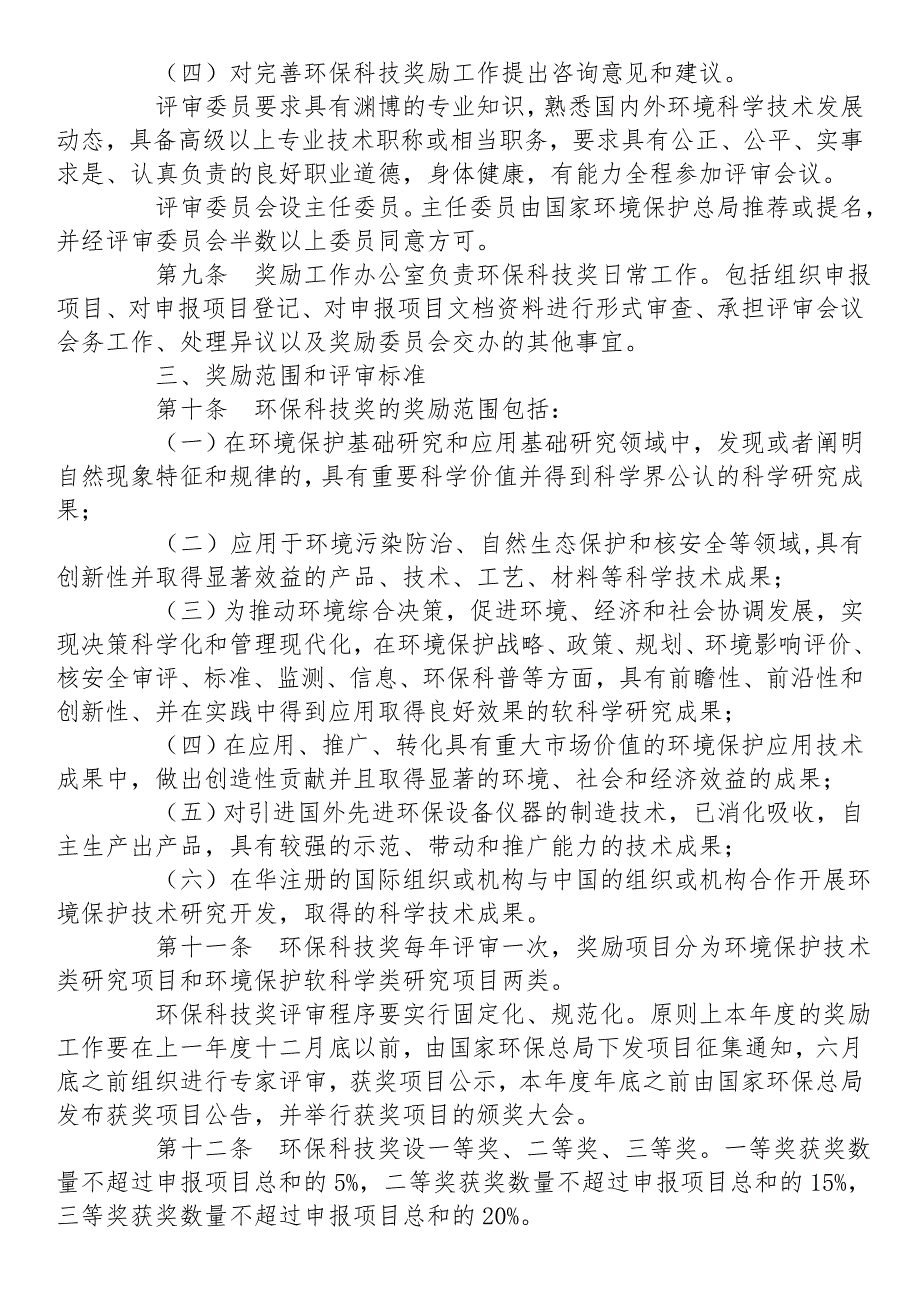 （四）对完善环保科技奖励工作提出咨询意见和建议。
评审委员要求具有渊博的专业知识，熟悉国内外环境科学技术发展
动态，具备高级以上专业技术职称或相当职务，要求具有公正、公平、实事
求是、认真负责的良好职业道德，身体健康，有能力全程参加评审会议。
评审委员会设主任委员。主任委员由国家环境保护总局推荐或提名，
并经评审委员会半数以上委员同意方可。
第九条　奖励工作办公室负责环保科技奖日常工作。包括组织申报
项目、对申报项目登记、对申报项目文档资料进行形式审查、承担评审会议
会务工作、处理异议以及奖励委员会交办的其他事宜。
三、奖励范围和评审标准
第十条　环保科技奖的奖励范围包括：
（一）在环境保护基础研究和应用基础研究领域中，发现或者阐明
自然现象特征和规律的，具有重要科学价值并得到科学界公认的科学研究成
果；
（二）应用于环境污染防治、自然生态保护和核安全等领域,具有
创新性并取得显著效益的产品、技术、工艺、材料等科学技术成果；
（三）为推动环境综合决策，促进环境、经济和社会协调发展，实
现决策科学化和管理现代化，在环境保护战略、政策、规划、环境影响评价、
核安全审评、标准、监测、信息、环保科普等方面，具有前瞻性、前沿性和
创新性、并在实践中得到应用取得良好效果的软科学研究成果；
（四）在应用、推广、转化具有重大市场价值的环境保护应用技术
成果中，做出创造性贡献并且取得显著的环境、社会和经济效益的成果；
（五）对引进国外先进环保设备仪器的制造技术，已消化吸收，自
主生产出产品，具有较强的示范、带动和推广能力的技术成果；
（六）在华注册的国际组织或机构与中国的组织或机构合作开展环
境保护技术研究开发，取得的科学技术成果。
第十一条　环保科技奖每年评审一次，奖励项目分为环境保护技术
类研究项目和环境保护软科学类研究项目两类。
环保科技奖评审程序要实行固定化、规范化。原则上本年度的奖励
工作要在上一年度十二月底以前，由国家环保总局下发项目征集通知，六月
底之前组织进行专家评审，获奖项目公示，本年度年底之前由国家环保总局
发布获奖项目公告，并举行获奖项目的颁奖大会。
第十二条　环保科技奖设一等奖、二等奖、三等奖。一等奖获奖数
量不超过申报项目总和的5%，二等奖获奖数量不超过申报项目总和的15%，
三等奖获奖数量不超过申报项目总和的20%。